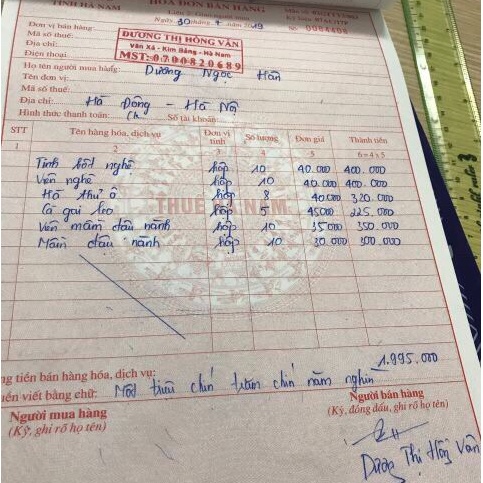 TỈNH HÀ NAM HÓA ĐƠN BÁN HÀNG
Liên 2:
Ngày 30 tháng năm 2019 Số: 0084408
Đơn vị bán hàng
Mã số thuế:
Địa chỉ:
Điện thoại:
DƯƠNG THỊ HỒNG VÂN
Văn Xá - Kim Bảng - Hà Nam
MST: 0700820689
Họ tên người mua hàng: Dương Ngọc Hân
Tên đơn vị:
Mã số thuế:
Địa chỉ: Hà Đông - Hà Nội
Hình thức thanh toán: Ck Số tài khoản:
STT Tên hàng hóa, dịch vụ Đơn vị tính Số lượng Đơn giá Thành tiền
1 2 5 6=4x5
Tinh bột nghệ hộp 10 40.000 400.000
Viên nghệ hộp 10 40.000 400.000
Hà thủ ô hộp 8 40000 320.000
Cà gai leo hộp 5 45000 225.000
Viên mầm đậu nành hộp 10 35000 350.000
Mầm đậu nành hộp 10 30.000 300.000
THUẾ HÀ NAM
ng tiền bán hàng hóa, dịch vụ: 1.995.000
iền viết bằng chữ: Một triệu chín trăm chín năm nghìn
Người mua hàng
(Ký, ghi rõ họ tên)
Người bán hàng
(Ký, đóng dấu, ghi rõ họ tên)
Dương Thị Hồng Vân